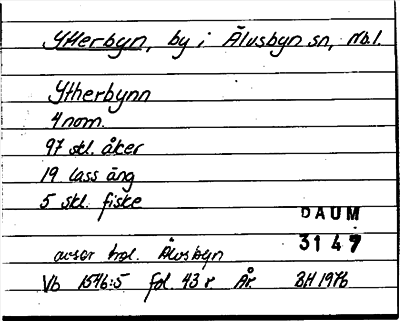 Ytterbyn, by i Älvsbyn sn, Nb.l.
Ytherbynn
4 nom.
97 skl. åker
19 lass äng
5 skl. fiske
DAUM
3147
avser trol. Älvsbyn
Vb 1546:5 fol. 43 r. År BH 1976